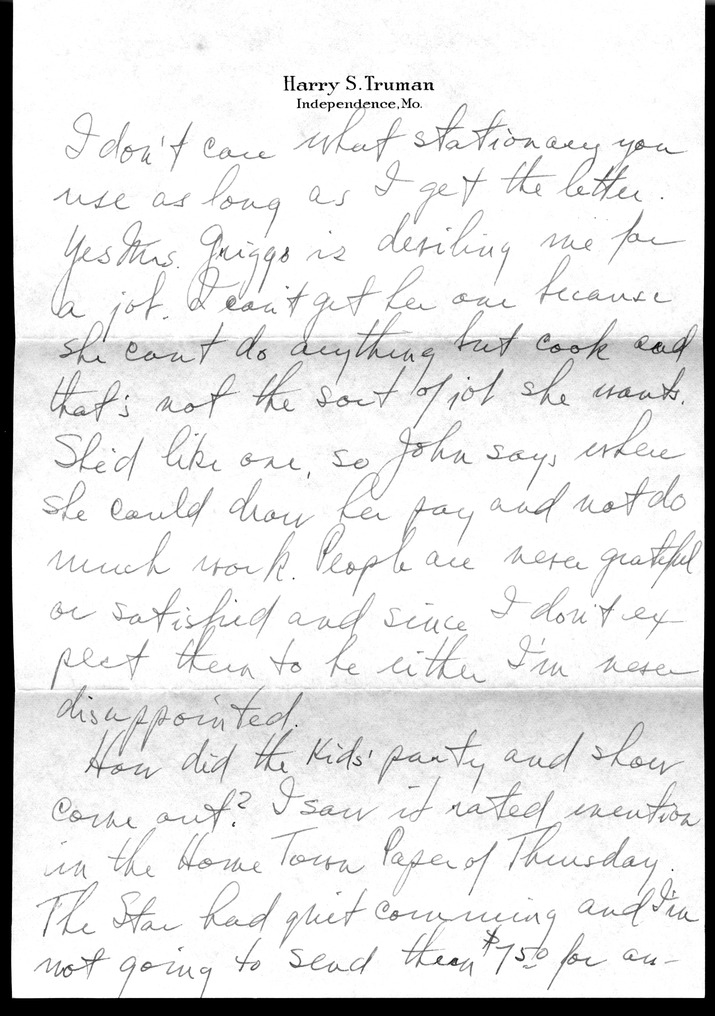 Harry S. Truman
Independence, Mo.
I don't care what stationary you
use as long as I get the letter.
Yes Mrs. Griggs is deviling me for
a job. I can't get her one because
she can't do anything but cook and
that's not the sort of job she wants.
She'd like one, so John says where
she could draw her pay and not do
much work. People are never grateful
or satisfied and since I don't ex
pect them to be either I'm never
disappointed.
How did the Kids' party and show
come out? I saw it rated mention
in the Home Town Paper of Thursday.
The Star had quit comming and I'm
not going to send them $7.50 for an-